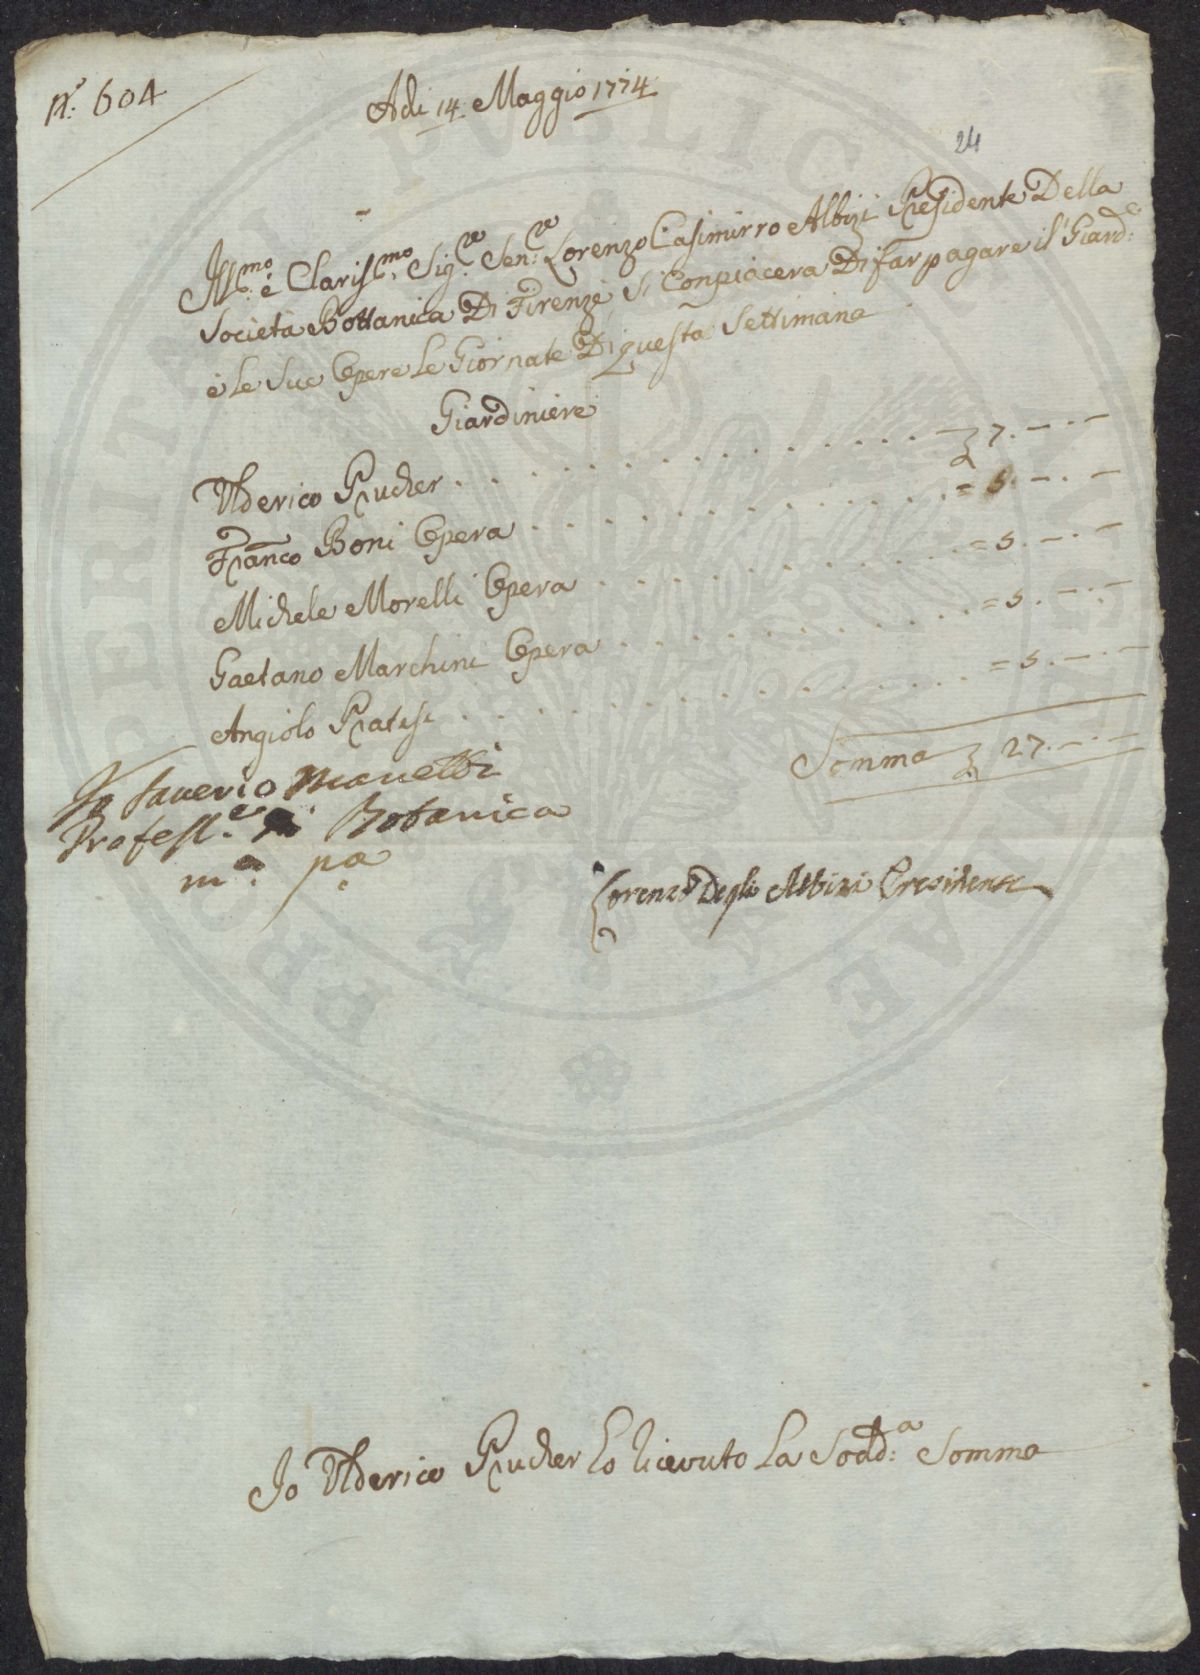 N.º 604
Adi 14 Maggio 1774
24
Ill.mo è Claris.mo Sig.re Sen.re Lorenzo Casimirro Albizi Presidente Della
Società Bottanica Di Firenze, Si Conpiacera Di far pagare il Giard.e
è le Sue Opere Le Giornate Di questa Settimana
Giardiniere
Ulderico Prucher . . . . . . . . . . . . . . £ 7. — . —
Franco Boni Opera . . . . . . . . . . . . . = 5. — . —
Michele Morelli Opera . . . . . . . . . . . = 5. — . —
Gaetano Marchini Opera . . . . . . . . . . = 5. — . —
Angiolo Pratesi . . . . . . . . . . . . . . = 5. — . —
Somma £ 27. — . —
Saverio Manetti
Profess.e di Botanica
m.o pa
Lorenzo Degli Albizi Presidente
Io Ulderico Prucher ho ricevuto La Sodd.a Somma